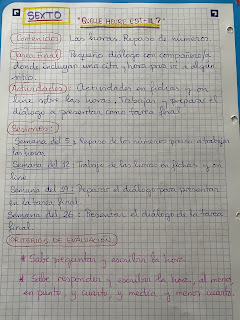 SEXTO "QUELLE HEURE EST-IL?"
Contenidos: Las horas. Repaso de números.
Tarea Final: Pequeño diálogo con compañeros/as
donde incluyan una cita y hora para ir a algún
sitio.
Actividades: Actividades en fichas y on
line sobre las horas, Trabajar y preparar el
diálogo a presentar como tarea final
Sesiones:
Semana del 5: Repaso de los números para trabajar
las horas.
Semana del 12: Trabajo de las horas en fichas y on
line.
Semana del 19: Preparar el diálogo para presentar
en la tarea final.
Semana del 26: Presentar el diálogo de la tarea
final.
CRITERIOS DE EVALUACIÓN:
* Sabe preguntar y escribir la hora.
* Sabe responder y escribir la hora, al menos
en punto, y cuarto, y media, y menos cuarto.